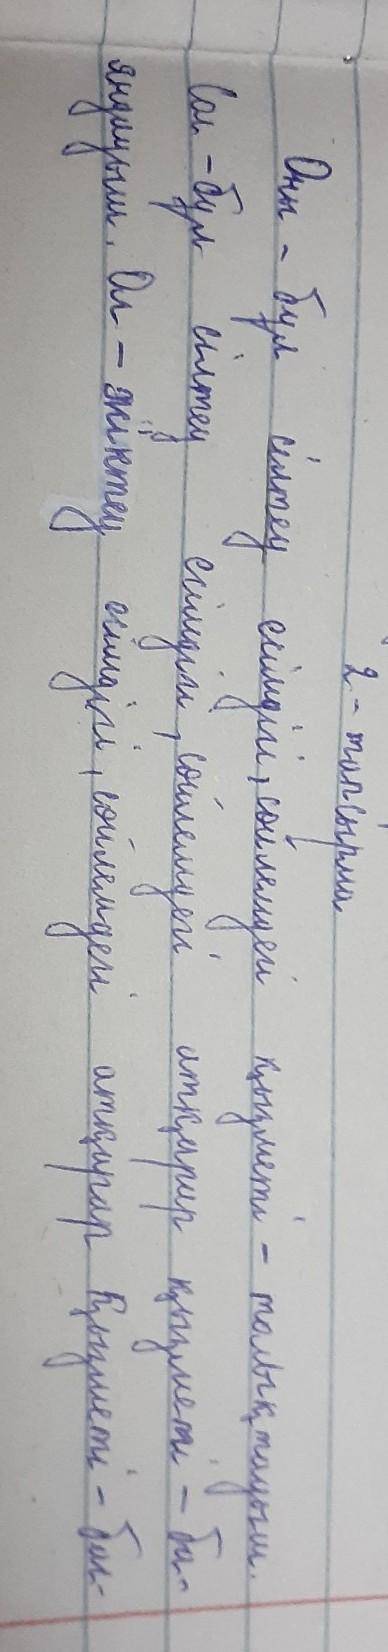 2 - тапсырма
Оны - бұл сілтеу есімдігі, сөйлемдегі қызметі - толықтауыш.
Сол - бұл сілтеу есімдігі, сөйлемдегі атқарар қызметі - ба-
яндауыш. Ол - жіктеу есімдігі, сөйлемдегі атқарар қызметі - бас-